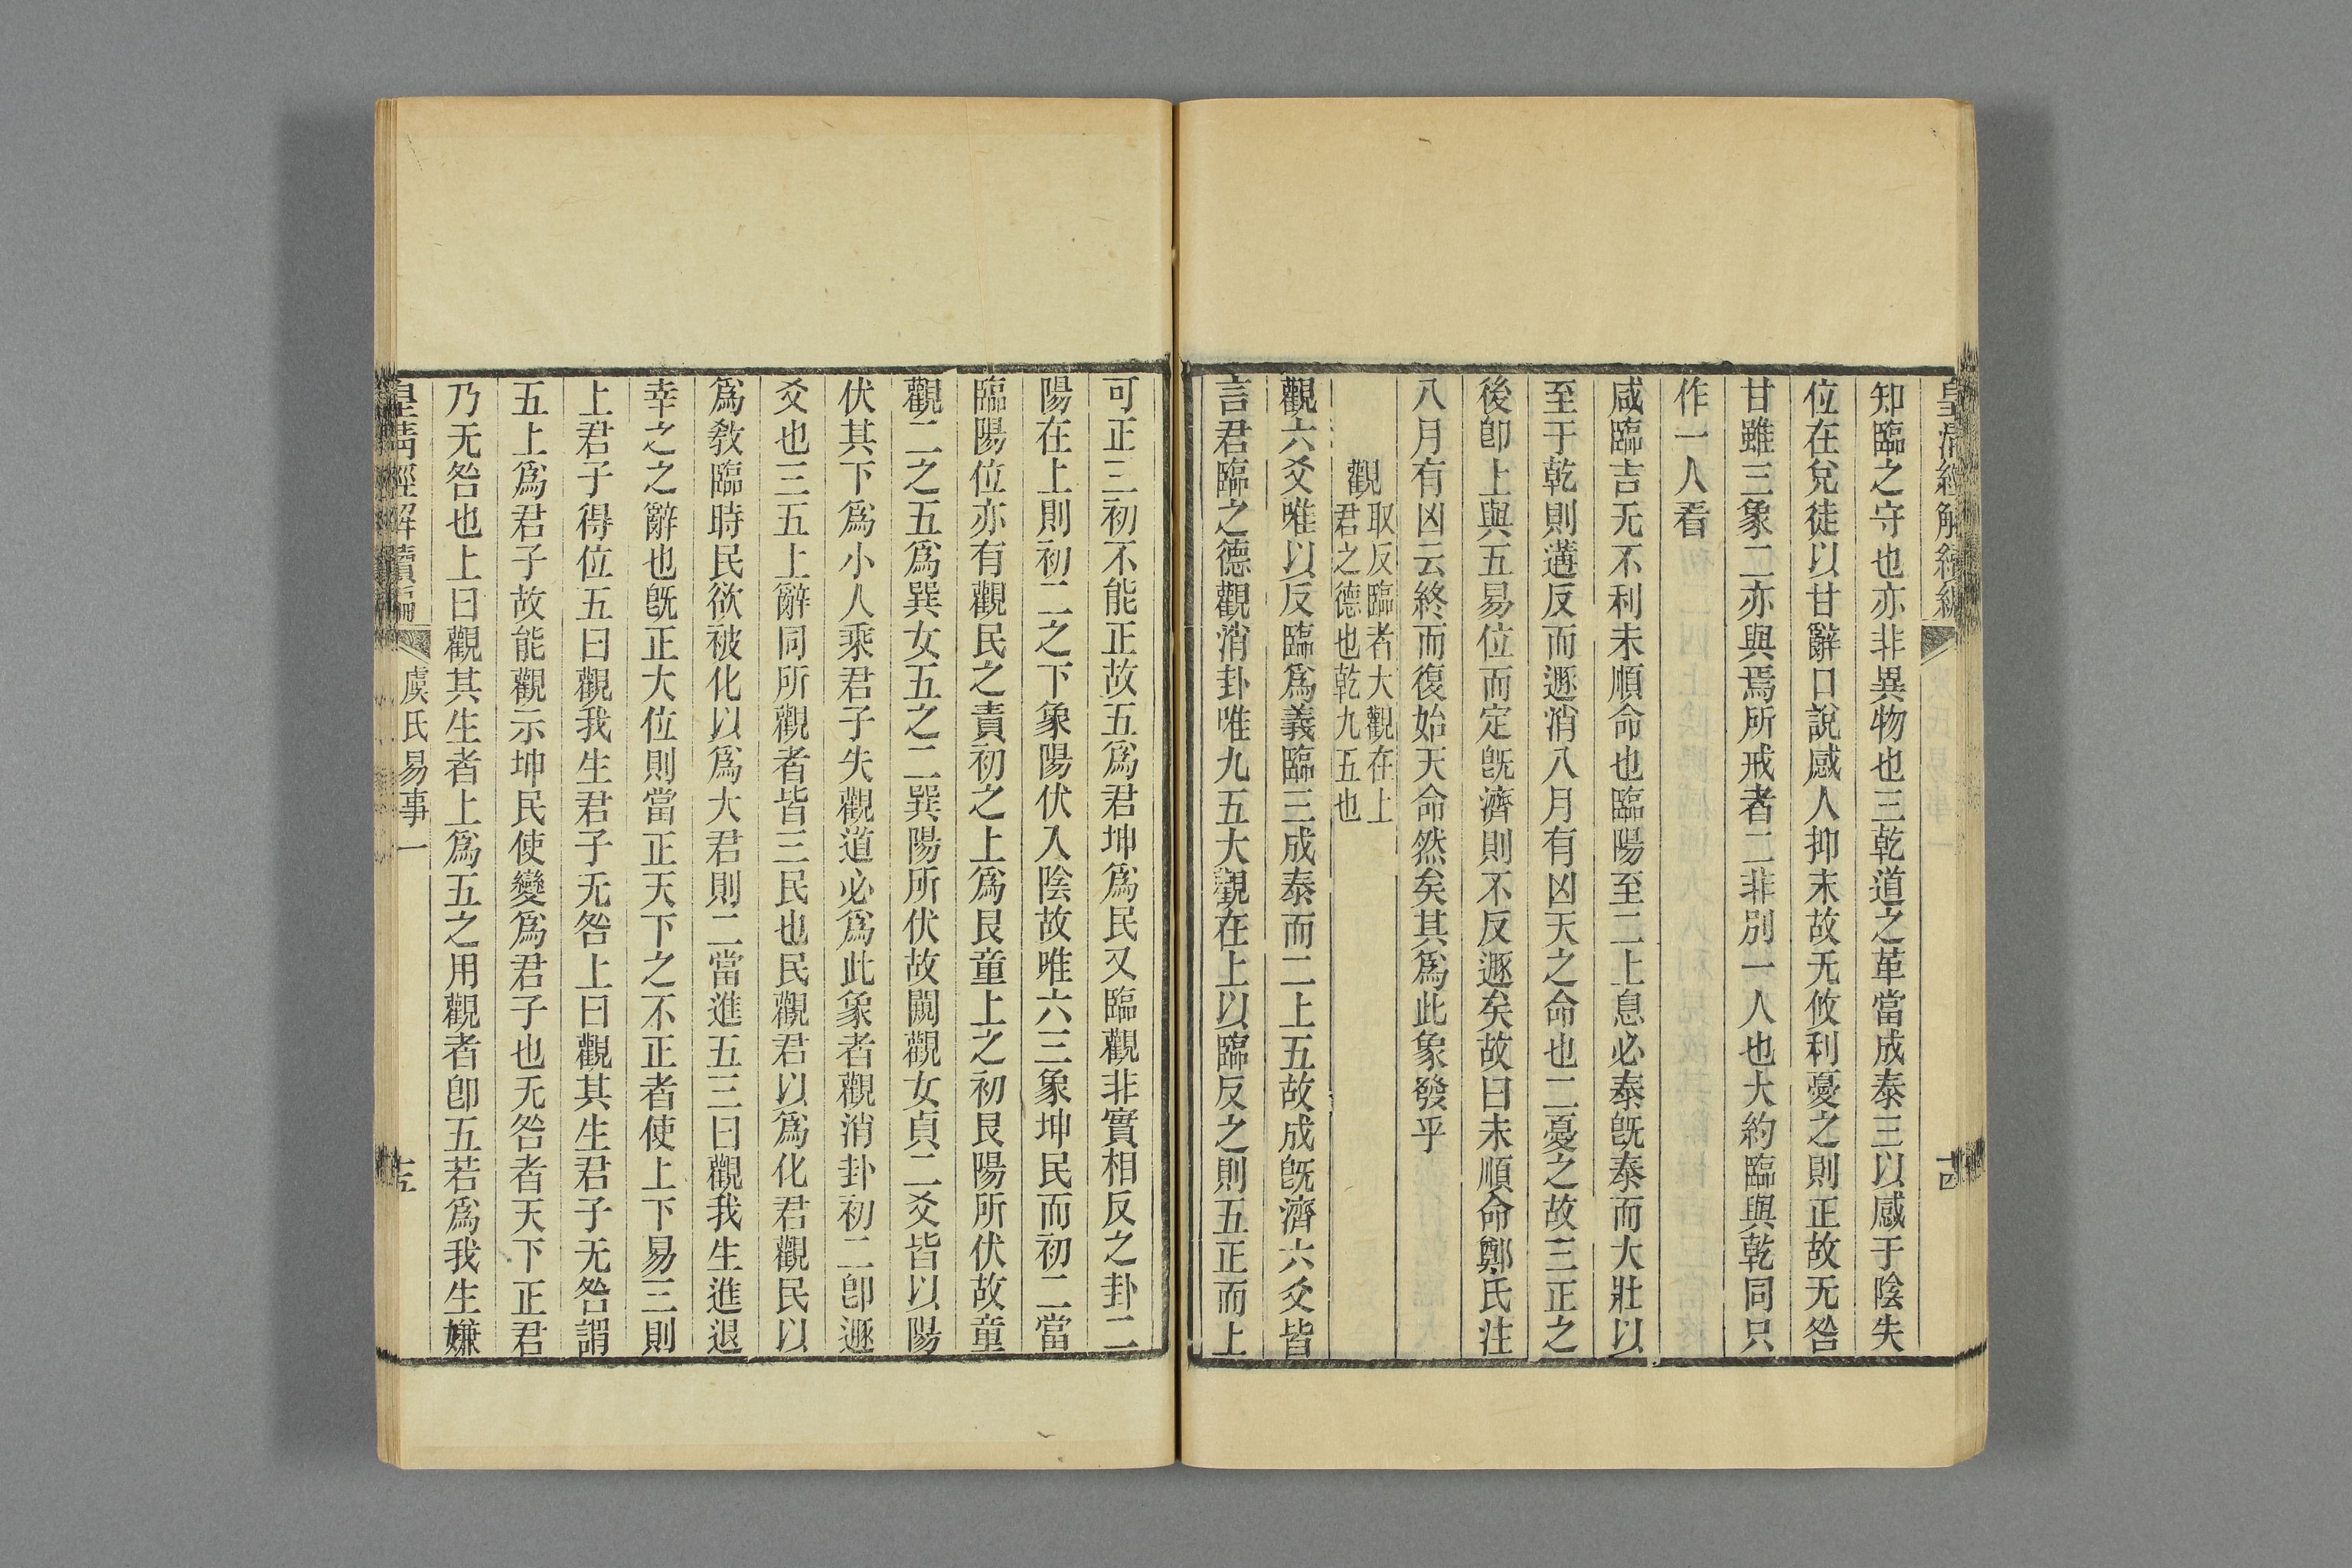 皇清經解續編
十四
知臨之守也亦非異物也三乾道之革當成泰三以感于陰失
位在兌徒以甘辭口說感人抑末故无攸利憂之則正故无咎
甘雖三象二亦與焉所戒者二非別一人也大約臨與乾同只
作一人看
咸臨吉无不利未順命也臨陽至二上息必泰旣泰而大壯以
至于乾則遘反而遯消八月有凶天之命也二憂之故三正之
後卽上與五易位而定旣濟則不反遯矣故曰未順命鄭氏注
八月有凶云終而復始天命然矣其爲此象發乎
觀
取反臨者大觀在上
君之德也乾九五也
觀六爻唯以反臨爲義臨三成泰而二上五故成旣濟六爻皆
言君臨之德觀消卦唯九五大觀在上以臨反之則五正而上
可正三初不能正故五爲君坤爲民又臨觀非實相反之卦二
陽在上則初二之下象陽伏入陰故唯六三象坤民而初二當
臨陽位亦有觀民之責初之上爲艮童上之初艮陽所伏故童
觀二之五爲巽女五之二巽陽所伏故闚觀女貞二爻皆以陽
伏其下爲小人乘君子失觀道必爲此象者觀消卦初二卽遯
爻也三五上辭同所觀者皆三民也民觀君以爲化君觀民以
爲敎臨時民欲被化以爲大君則二當進五三曰觀我生進退
幸之之辭也旣正大位則當正天下之不正者使上下易三則
上君子得位五曰觀我生君子无咎上曰觀其生君子无咎謂
五上爲君子故能觀示坤民使變爲君子也无咎者天下正君
乃无咎也上曰觀其生者上爲五之用觀者卽五若爲我生嫌
皇清經解續編
虞氏易事一
十五